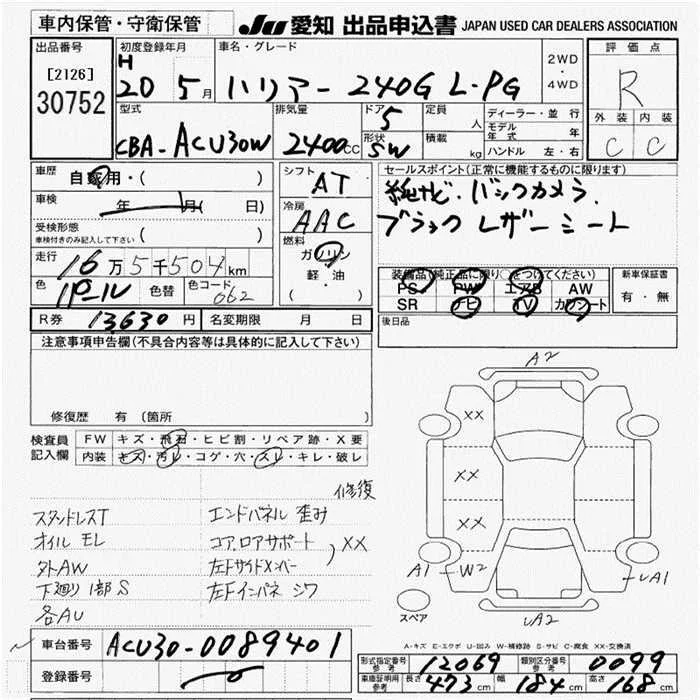 車内保管・守衛保管
JU 愛知 出品申込書 JAPAN USED CAR DEALERS ASSOCIATION
出品番号
[2126]
30752
初度登録年月
H
20 5 月
車名・グレード
ハリアー 240G L-PG
2WD
・
4WD
評価点
R
外装 内装
C C
型式
CBA-ACU30W
排気量
2400cc
ドア
5
形状
SW
定員
人
積載
kg
ディーラー・並行
モデル年式 年
ハンドル 左・右
車歴
自家用・( )
車検
年 月( 日)
受検形態
車検付きのみ記入して下さい ( )
走行
16万5千504km
色
パール
色替
色コード
062
シフト
AT
冷房
AAC
燃料
ガソリン
軽・油
( )
セールスポイント(正常に機能するものに限ります)
純ナビ、バックカメラ、
ブラックレザーシート
装備品(純正品に限り○をつけてください)
PS PW エアB AW
SR ナビ TV カワシート
新車保証書
有・無
後日品
R券 13630円 名変期限 月 日
注意事項申告欄(不具合内容等は具体的に記入して下さい)
修復歴 有(箇所
検査員
記入欄
FW キズ・飛石・ヒビ割・リペア跡・X要
内装 キズ・汚レ・コゲ・穴・スレ・キレ・破レ
修復
スタッドレスT
オイルモレ
外AW
下廻り1部S
各AU
エンドパネル歪み
コア、ロアサポート
左Fサイドメンバー
左Fインパネシワ
XX
A2
XX
XX
XX
A1
W2
A1
A2
スペア
A-キズ E-エクボ U-凹み W-補修跡 S-サビ C-腐食 XX-交換済
車台番号 ACU30-0089401
登録番号
型式指定番号
参考
12069
類別区分番号
参考
0099
車庫証明用
参考
長さ 473cm 幅 184cm 高さ 168cm